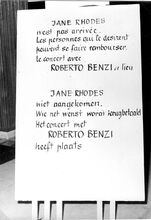 JANE RHODES
n'est pas arrivée.
Les personnes qui le desirent
peuvent se faire rembourser.
Le concert avec
ROBERTO BENZI a lieu
JANE RHODES
niet aangekomen.
Wie het wenst wordt terugbetaald
Het concert met
ROBERTO BENZI
heeft plaats